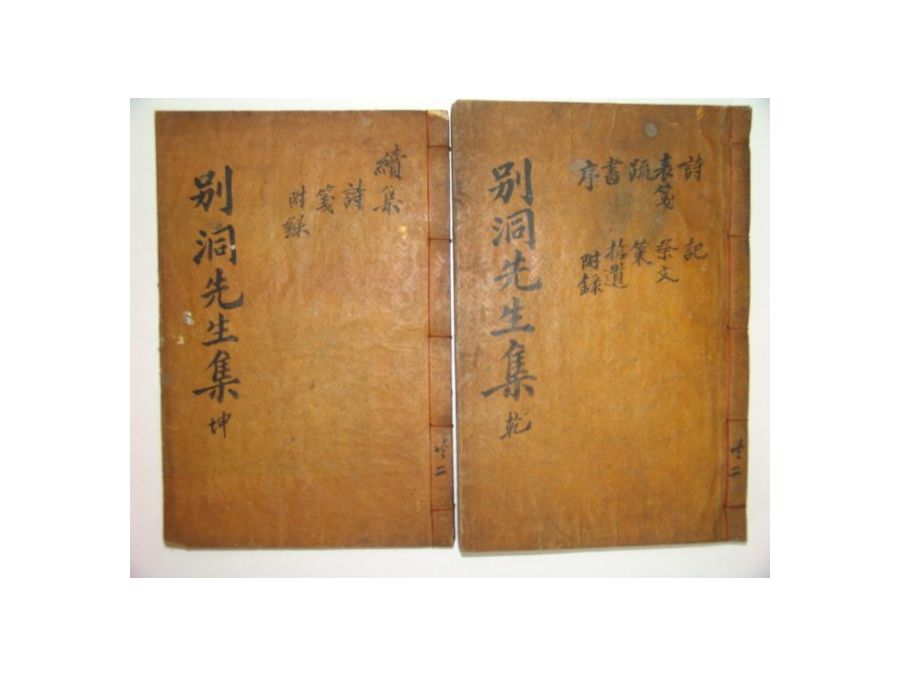 共二
詩 記
表箋 祭文
疏 策
書 拾遺
序 附錄
别洞先生集 乾
共二
續集
詩
箋
附錄
别洞先生集 坤